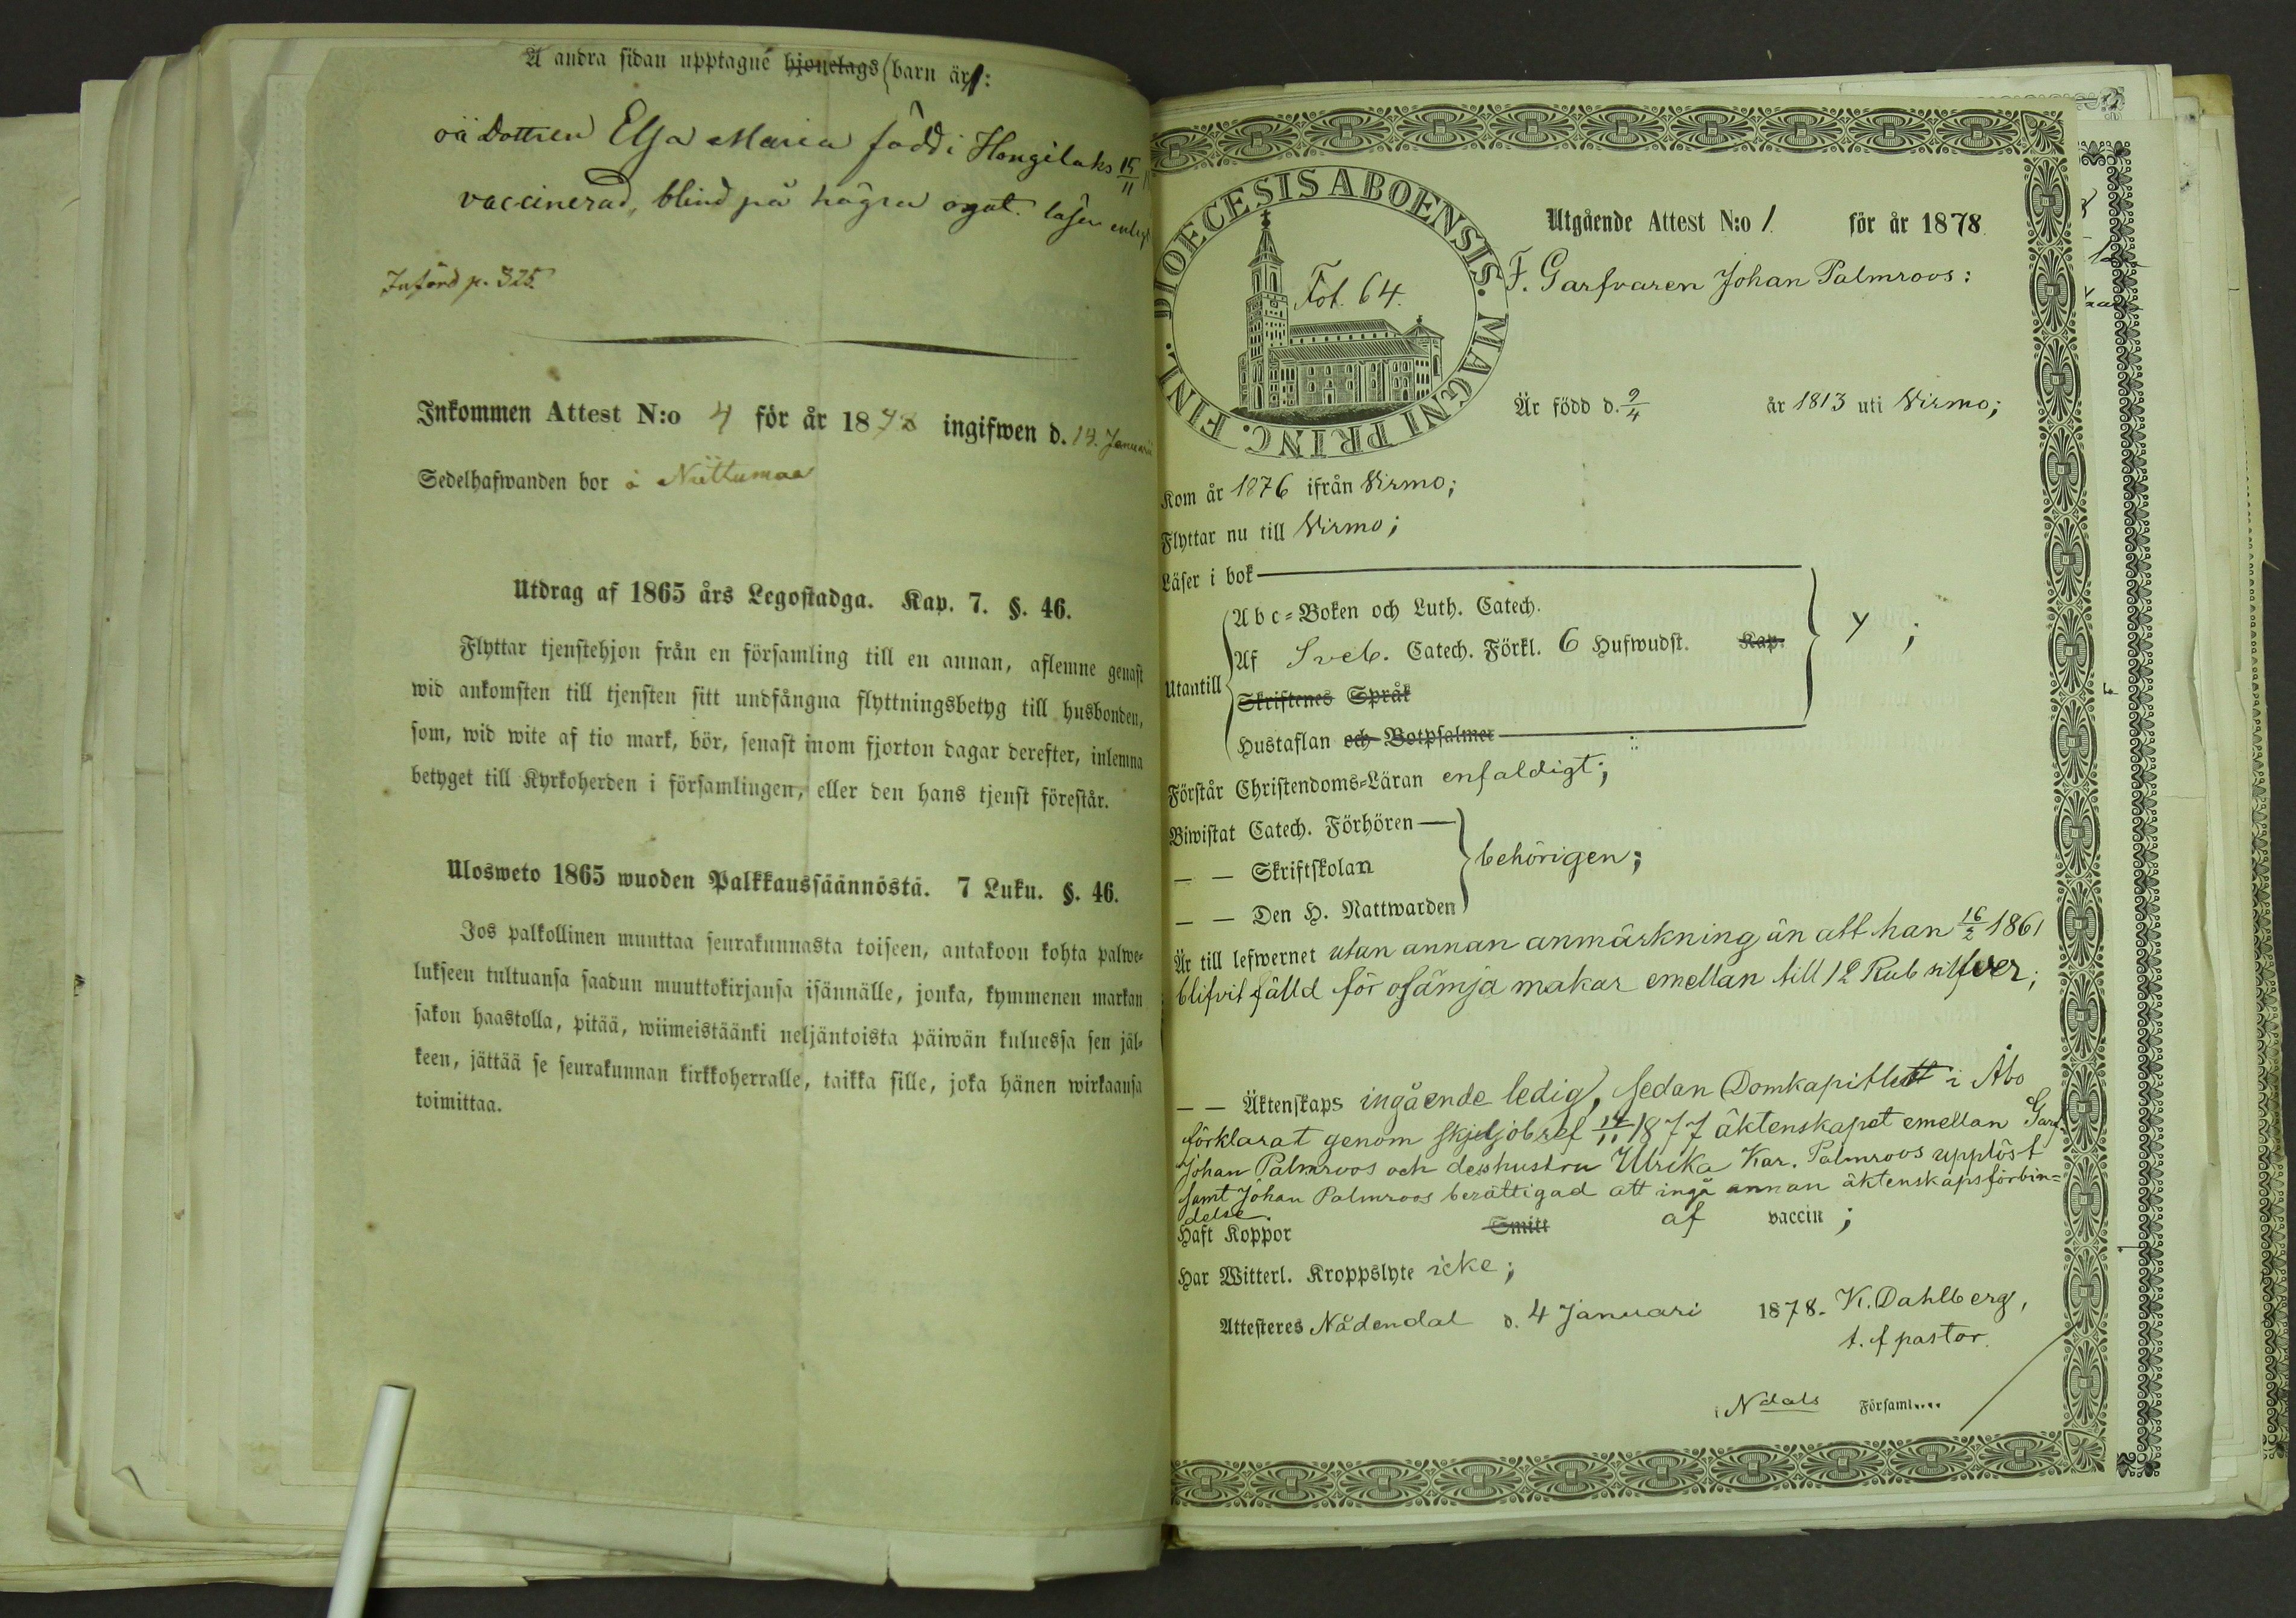 A andra sidan upptagne hjonelags barn är:
oä Dottren Elsa Maria född i Hongilaks 15/11
vaccinerad, blind på högra ögat. läser enligt
Införd p. 325.
Inkommen Attest N:o 4 för år 1878 ingifwen d. 14. Januari
Sedelhafwanden bor å Niittumaa
Utdrag af 1865 års Legostadga. Kap. 7. §. 46.
Flyttar tjenstehjon från en församling till en annan, aflemne genast
wid ankomsten till tjensten sitt undfångna flyttningsbetyg till husbonden,
som, wid wite af tio mark, bör, senast inom fjorton dagar derefter, inlemna
betyget till Kyrkoherden i församlingen, eller den hans tjenst förestår.
Ulosweto 1865 wuoden Palkkaussäännöstä. 7 Luku. §. 46.
Jos palkollinen muuttaa seurakunnasta toiseen, antakoon kohta palwe-
lukseen tultuansa saadun muuttokirjansa isännälle, jonka, kymmenen markan
sakon haastolla, pitää, wiimeistäänki neljäntoista päiwän kuluessa sen jäl-
keen, jättää se seurakunnan kirkkoherralle, taikka sille, joka hänen wirkaansa
toimittaa.
DIOECESIS ABOENSIS. MAGNI PRINC. FINL.
Fol. 64.
Utgående Attest N:o 1. för år 1878.
F. Garfvaren Johan Palmroos:
Är född d. 9/4 år 1813 uti Virmo;
Kom år 1876 ifrån Virmo;
Flyttar nu till Virmo;
Läser i bok
Utantill
Abc-Boken och Luth. Catech.
Af Sveb. Catech. Förkl. 6 Hufwudst. Kap.
y ;
Skriftenes Språk
Hustaflan och Botpsalmer
Förstår Christendoms-Läran enfaldigt;
Biwistat Catech. Förhören
— — Skriftskolan
behörigen;
— — Den H. Nattwarden
Är till lefwernet utan annan anmärkning än att han 16/2 1861
blifvit fälld för osämja makar emellan till 12 Rub silfver;
— — Äktenskaps ingående ledig, sedan Domkapitlett i Åbo
förklarat genom skiljobref 14/11 1877 äktenskapet emellan Garf.
Johan Palmroos och dess hustru Ulrika Kar. Palmroos upplöst
samt Johan Palmroos berättigad att ingå annan äktenskapsförbin=
delse.
Haft Koppor Smitt af vaccin ;
Har Witterl. Kroppslyte icke;
Attesteres Nådendal d. 4 Januari 1878. K. Dahlberg,
t. f pastor.
i Ndals Församl....